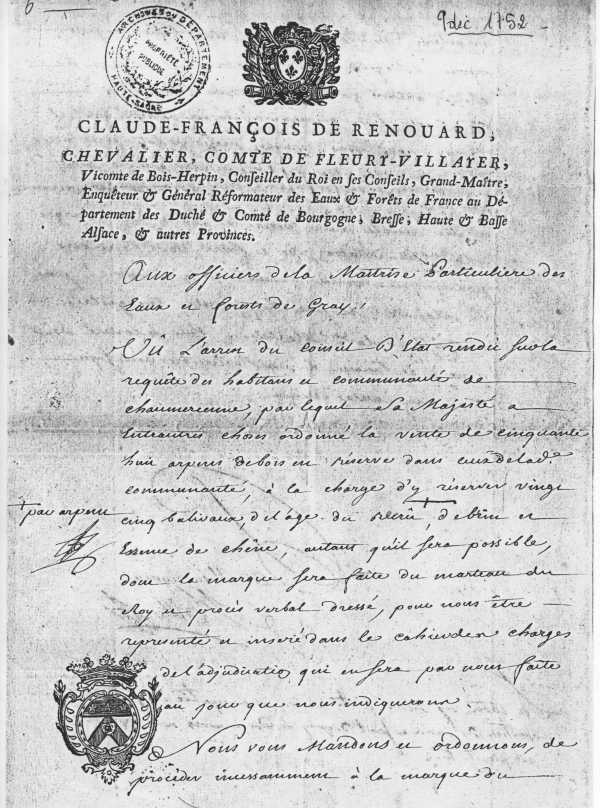 6
9 déc 1752
ARCHIVES DU DÉPARTEMENT
PROPRIÉTÉ
PUBLIQUE
HAUTE-SAÔNE
CLAUDE-FRANÇOIS DE RENOUARD,
CHEVALIER, COMTE DE FLEURY-VILLAYER,
Vicomte de Bois-Herpin, Conseiller du Roi en ses Conseils, Grand-Maître,
Enquêteur & Général Réformateur des Eaux & Forêts de France au Dé-
partement des Duché & Comté de Bourgogne, Bresse, Haute & Basse
Alsace, & autres Provinces.
Aux officiers de la Maitrise Particuliere des
Eaux et forests de Gray,
Vû L'arrest du Conseil D'Etat rendu sur la
requête des habitans et communauté de
chaumercenne, par lequel Sa Majesté a
Entrautres choses ordonné la vente de cinquante
huit arpens de bois en réserve dans ceux de lad.
communauté, à la charge d'y réserver vingt
cinq balivaux, de l'age du recrû, de brin et
+ par arpent
Essence de chêne, autant qu'il sera possible,
dont la marque sera faite du marteau du
Roy et procès verbal dressé, pour nous être
représenté et inséré dans le cahier des charges
de l'adjudication qui en sera par nous faite
au jour que nous indiquerons.
Nous vous Mandons et ordonnons, de
procéder incessamment à la marque du